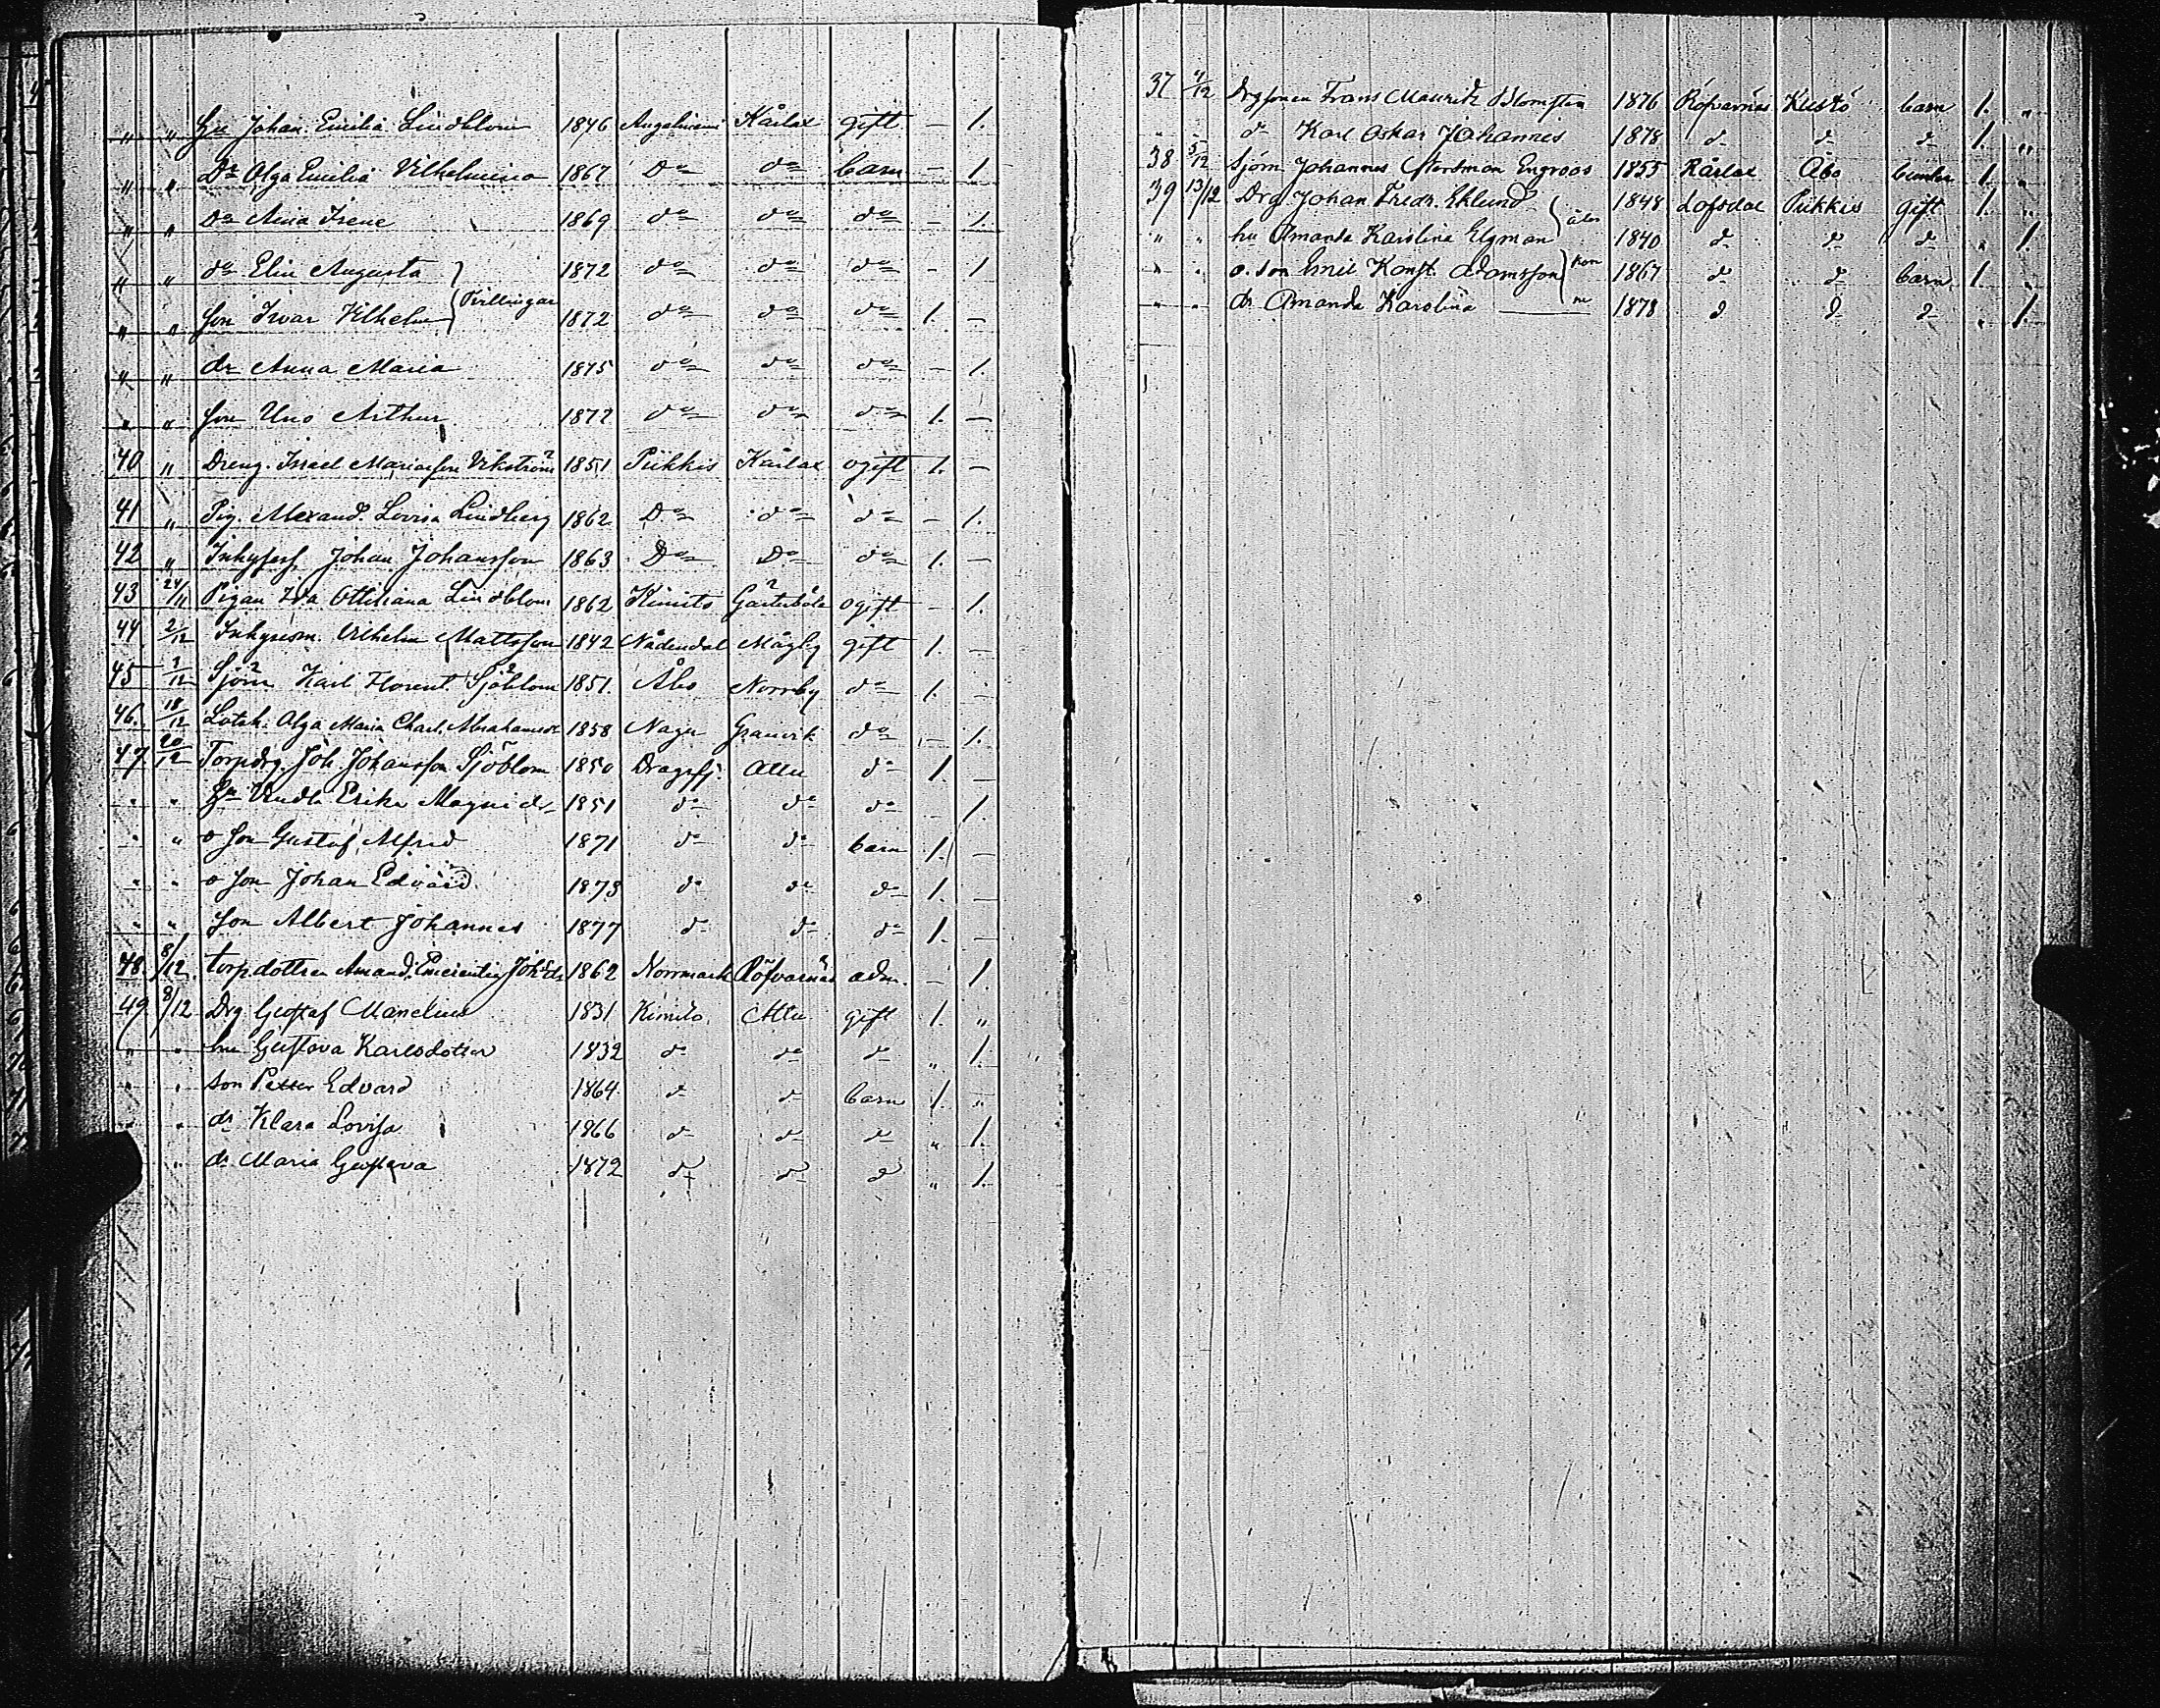 " " Hu Johan. Emilia Lindblom 1846 Angelniemi Kårlax gift — 1.
" " Dr Olga Emilia Vilhelmina 1867 Do do barn — 1
" " Dr Aina Irene 1869 do do do — 1.
" " dr Elin Augusta } 1872 do do do — 1
" " Son Ivar Vilhelm } Tvillingar 1872 do do do 1. —
" " dr Anna Maria 1875 do do do — 1.
" " Son Uno Arthur 1872 do do do 1. —
40 " Dreng. Israel Mariaeson Vikström 1851 Piikkis Kårlax ogift 1. —
41 " Pig. Alexand. Lovisa Lindberg 1862 Do do do — 1.
42 " Johan Johansson 1863 Do Do do 1. —
43 24/11 Pigan Ida Ottiliana Lindblom 1862 Kimito ogift — 1.
44 2/12 Inhysesm. Vilhelm Mattsson 1842 Nådendal Mågby gift 1. —
45 2/12 Sjöm Karl Florent. Sjöblom 1851. Åbo Norrby do 1. —
46. 18/12 Olga Maria Charl. Abrahamsdr 1858 Nagu Granvik do — 1.
47 20/12 Torpdrg. Joh. Johansson Sjöblom 1850 Dragsfj. Attu do 1. —
" " Hu Vendla Erika Magnidr 1851 do do do — 1.
" " o Son Gustaf Alfred 1871 do do barn 1. —
" " o Son Johan Edvard 1873 do do do 1. —
" " Son Albert Johannes 1877 do do do 1. —
48. 8/12 torp.dottren Amand. Johsdr 1862 Norrmark Röfvarnäs adm. — 1.
49 8/12 Drg Gustaf Manelius 1831 Kimito Attu gift 1. "
" " hu Gustava Karlsdotter 1832 do do do " 1.
" " son Petter Edvard 1864 do do barn 1. "
" " dr Klara Lovisa 1866 do do do " 1.
" dr Maria Gustava 1872 do do do " 1.
37 4/12 Drgsonen Frans Mauritz Blomsten 1876 Röfvarnäs Kustö barn 1. "
" " do Karl Oskar Johannes 1878 do do do 1. "
38 5/12 Sjöm Johannes Nordman Engroos 1855 Kårlax Åbo 1. "
39 13/12 Drg. Johan Fredr. Eklund 1848 Lofsdal Piikkis gift 1. "
" " hu Amanda Karolina Elgman 1840 do do do " 1.
" " o. son Emil Konst. Adamsson 1867 do do barn 1. "
" " dr Amanda Karolina 1878 do do do " 1.